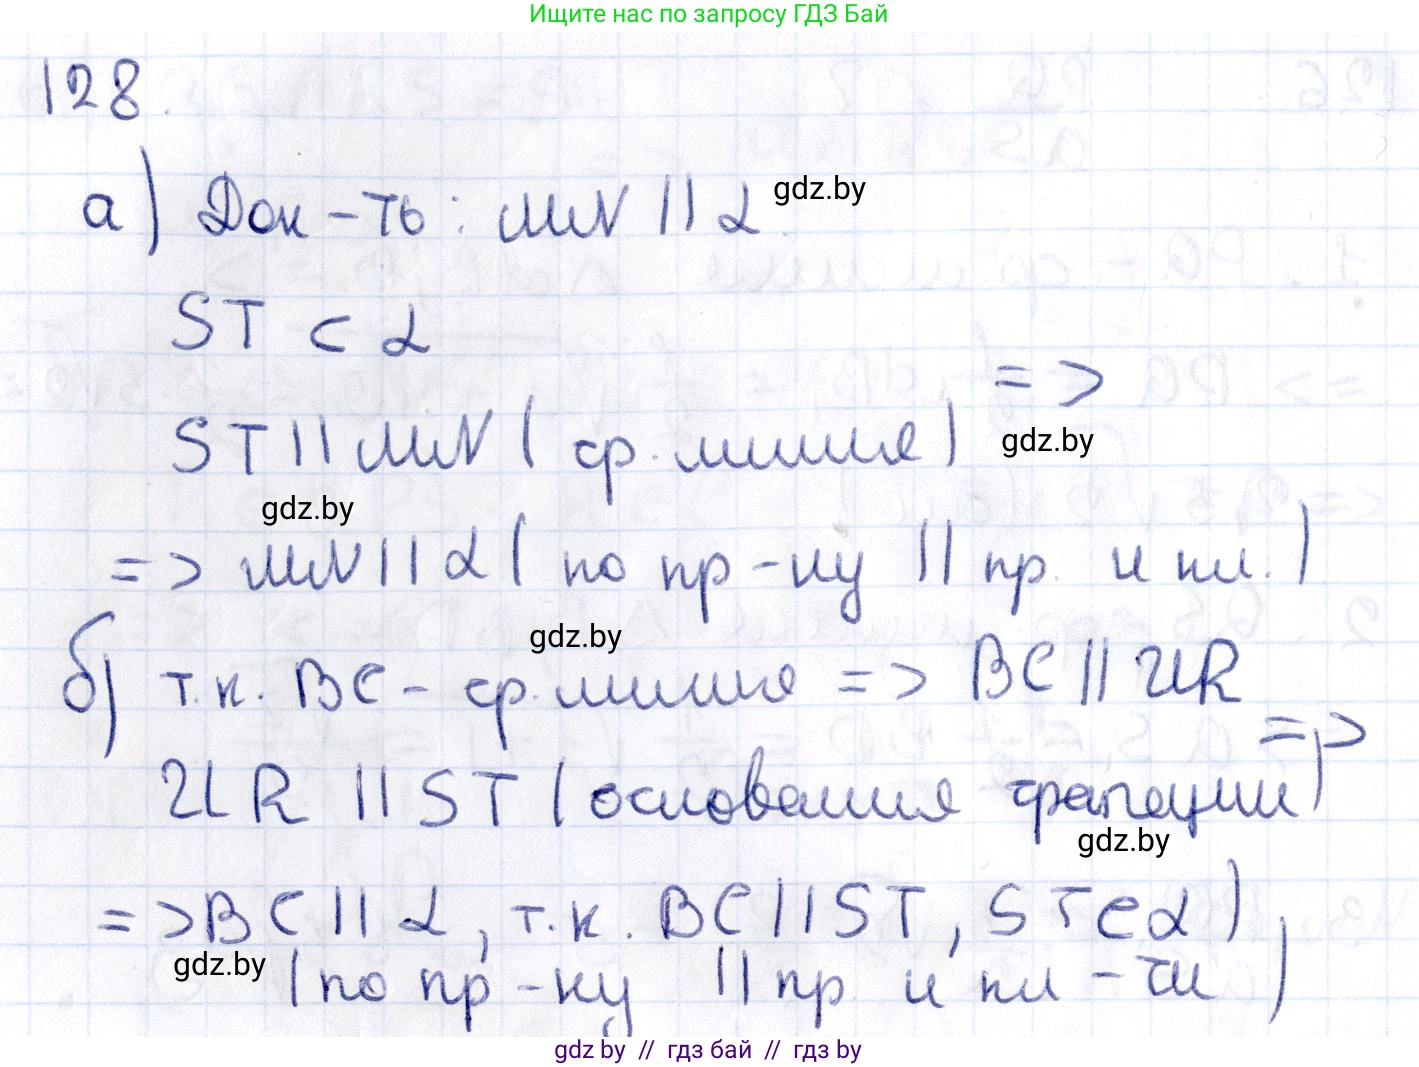 Ищите нас по запросу ГДЗ Бай
128.
а) Док-ть: MN || α. gdz.by
ST ⊂ α
=>
ST || MN ( ср. линия ) gdz.by
gdz.by
=> MN || α ( по пр-ку || пр. и пл. )
gdz.by
б) т.к. BC - ср. линия => BC || UR
=>
UR || ST ( основания трапеции )
gdz.by
=> BC || α, т.к. BC || ST, ST ⊂ α ),
gdz.by ( по пр-ку || пр и пл-ти )
gdz.by // гдз бай // гдз by